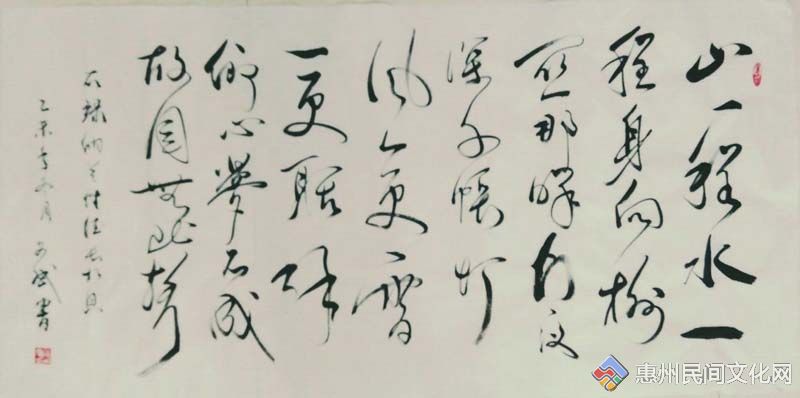 山一程水一
程身向榆
關那畔行夜
深千帳灯
风一更雪
一更聒碎
鄉心夢不成
故園無此聲
右録纳兰性德長相思
乙未年月書
惠州民间文化网